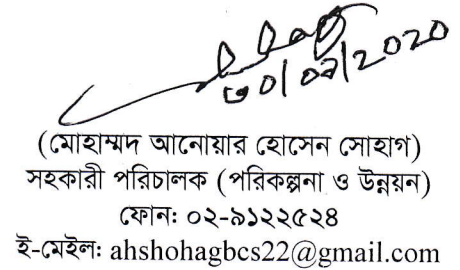 ৩০/০৯/2020
(মোহাম্মদ আনোয়ার হোসেন সোহাগ)
সহকারী পরিচালক (পরিকল্পনা ও উন্নয়ন)
ফোন: ০২-৯১২২৫২৪
ই-মেইল: ahshohagbcs22@gmail.com